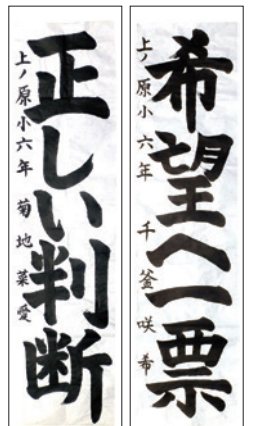 希望へ一票
上ノ原小六年 千釜咲希
正しい判断
上ノ原小六年 菊地菜愛